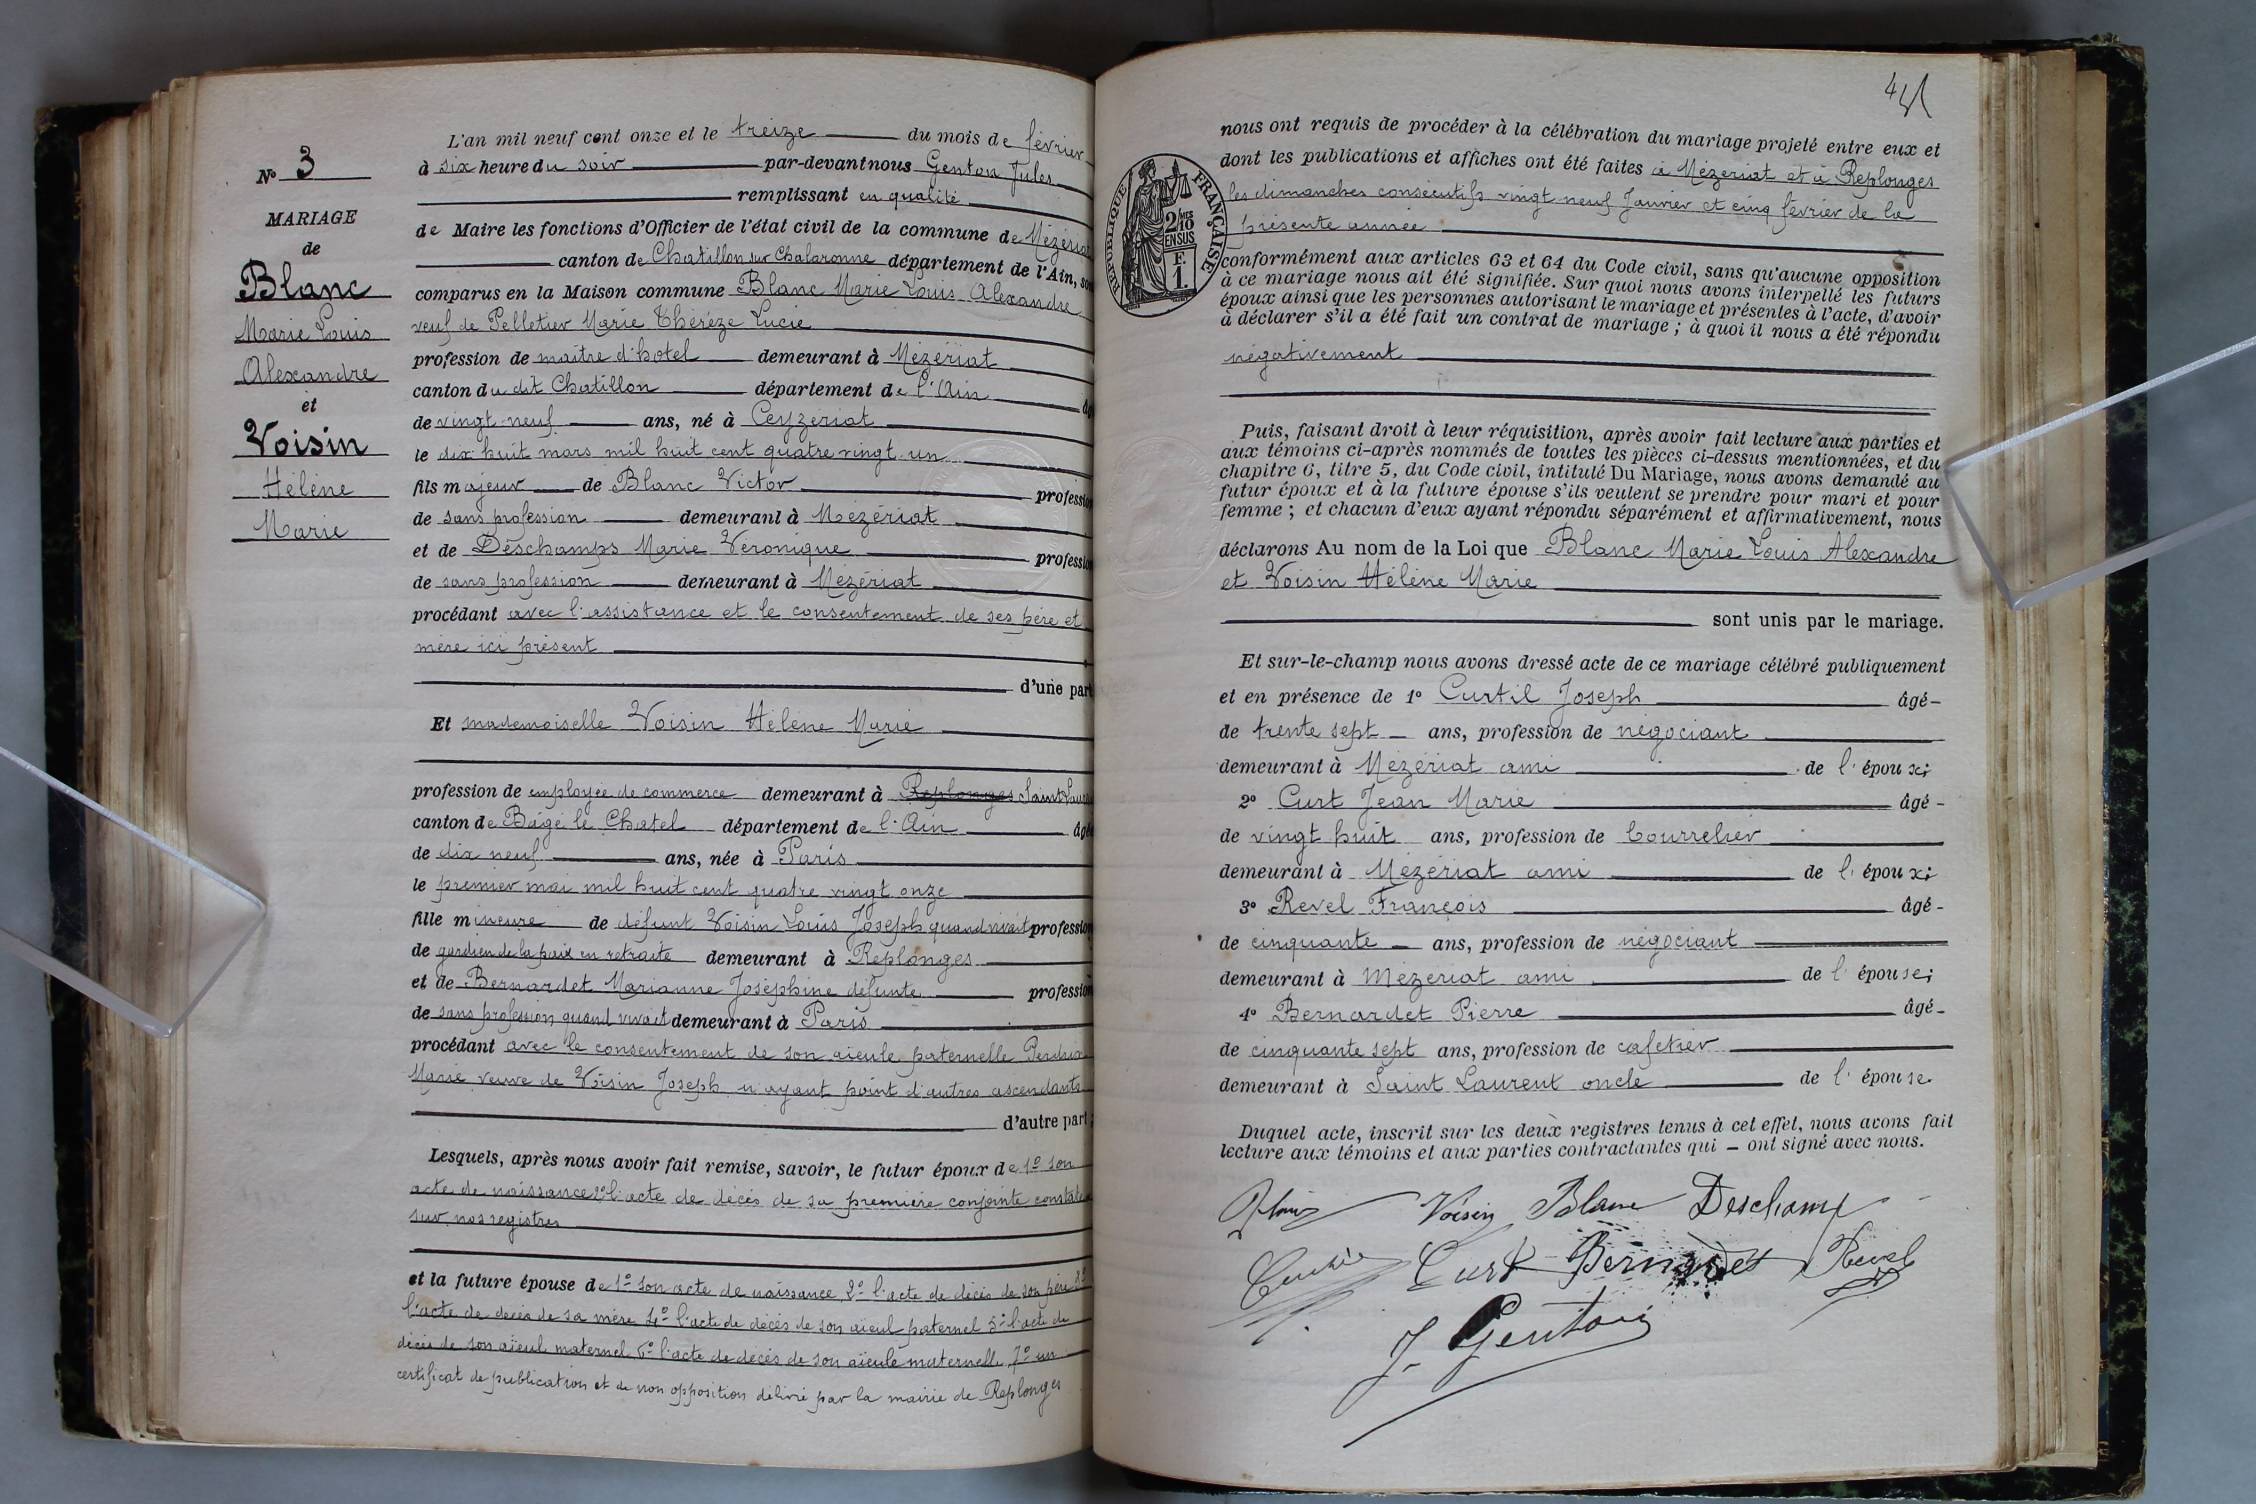 N° 3
MARIAGE
de
Blanc
Marie Louis
Alexandre
et
Voisin
Hélène
Marie
L'an mil neuf cent onze et le treize du mois de février
à six heure du soir par-devant nous Genton Jules
remplissant en qualité
de Maire les fonctions d'Officier de l'état civil de la commune de Mézériat
canton de Chatillon sur Chalaronne département de l'Ain, sont
comparus en la Maison commune Blanc Marie Louis Alexandre
veuf de Pelletier Marie Thérèze Lucie
profession de maître d'hotel demeurant à Mézériat
canton du dit Chatillon département de l'Ain âgé
de vingt-neuf ans, né à Ceyzeriat
le dix huit mars mil huit cent quatre vingt un
fils majeur de Blanc Victor profession
de sans profession demeurant à Mézériat
et de Déschamps Marie Véronique profession
de sans profession demeurant à Mézériat
procédant avec l'assistance et le consentement de ses père et
mère ici présent
d'une part
Et mademoiselle Voisin Hélène Marie
profession de employée de commerce demeurant à Replonges Saint Laurent
canton de Bâgé le Chatel département de l'Ain âgée
de dix neuf ans, née à Paris
le premier mai mil huit cent quatre vingt onze
fille mineure de défunt Voisin Louis Joseph quand vivait profession
de gardien de la paix en retraite demeurant à Replonges
et de Bernardet Marianne Joséphine défunte profession
de sans profession quand vivait demeurant à Paris
procédant avec le consentement de son aieule paternelle
Marie veuve de Voisin Joseph n'ayant point d'autres ascendants
d'autre part;
Lesquels, après nous avoir fait remise, savoir, le futur époux de 1° son
acte de naissance 2° l'acte de décès de sa première conjointe constaté
sur nos registres
et la future épouse de 1° son acte de naissance 2° l'acte de décès de son père 3°
l'acte de décès de sa mère 4° l'acte de décès de son aieul paternel 5° l'acte de
décès de son aïeul maternel 6° l'acte de décès de son aïeule maternelle 7° un
certificat de publication et de non opposition délivré par la mairie de Replonges
RÉPUBLIQUE FRANÇAISE
2/10 MES
EN SUS
F.
1.
nous ont requis de procéder à la célébration du mariage projeté entre eux et
dont les publications et affiches ont été faites à Mézériat et à Replonges
les dimanches consécutifs vingt neuf Janvier et cinq février de la
présente année
conformément aux articles 63 et 64 du Code civil, sans qu'aucune opposition
à ce mariage nous ait été signifiée. Sur quoi nous avons interpellé les futurs
époux ainsi que les personnes autorisant le mariage et présentes à l'acte, d'avoir
à déclarer s'il a été fait un contrat de mariage ; à quoi il nous a été répondu
négativement
Puis, faisant droit à leur réquisition, après avoir fait lecture aux parties et
aux témoins ci-après nommés de toutes les pièces ci-dessus mentionnées, et du
chapitre 6, titre 5, du Code civil, intitulé Du Mariage, nous avons demandé au
futur époux et à la future épouse s'ils veulent se prendre pour mari et pour
femme ; et chacun d'eux ayant répondu séparément et affirmativement, nous
déclarons Au nom de la Loi que Blanc Marie Louis Alexandre
et Voisin Hélène Marie
sont unis par le mariage.
Et sur-le-champ nous avons dressé acte de ce mariage célébré publiquement
et en présence de 1° Curtil Joseph âgé
de trente sept ans, profession de négociant
demeurant à Mézériat ami de l'époux;
2° Curt Jean Marie âgé
de vingt huit ans, profession de bourrelier
demeurant à Mézériat ami de l'époux;
3° Revel François âgé
de cinquante ans, profession de négociant
demeurant à Mézériat ami de l'épouse;
4° Bernardet Pierre âgé
de cinquante sept ans, profession de cafetier
demeurant à Saint Laurent oncle de l'épouse.
Duquel acte, inscrit sur les deux registres tenus à cet effet, nous avons fait
lecture aux témoins et aux parties contractantes qui ont signé avec nous.
Voisin Blanc Deschamp
Curt Bernardet Revel
J. Genton